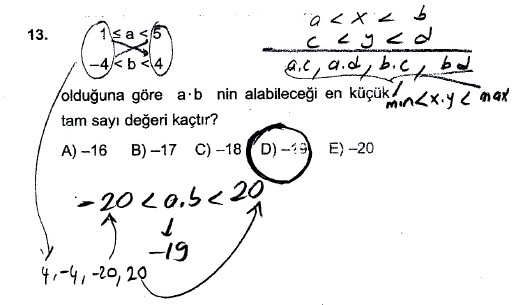 13. 1 ≤ a < 5
−4 < b < 4
a < x < b
c < y < d
a.c, a.d, b.c, bd
min < x.y < max
olduğuna göre a·b nin alabileceği en küçük
tam sayı değeri kaçtır?
A) −16 B) −17 C) −18 D) −19 E) −20
−20 < a.b < 20
↓
−19
4, -4, -20, 20